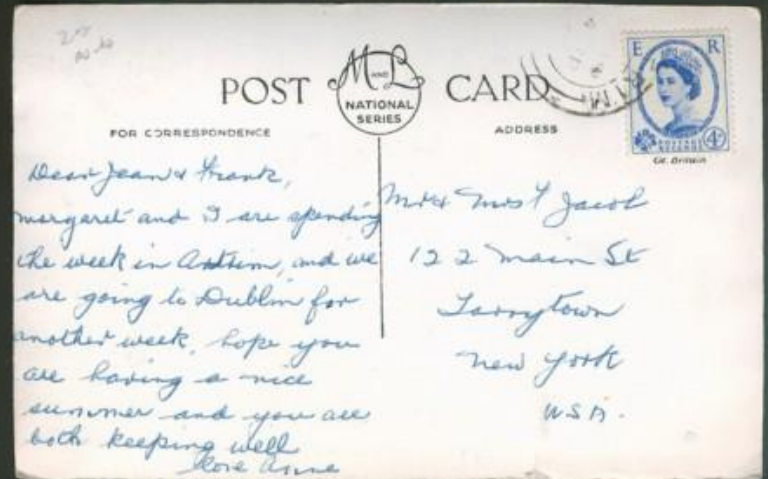 POST CARD
M AND L
NATIONAL
SERIES
FOR CORRESPONDENCE
ADDRESS
E R
POSTAGE
REVENUE
4D
Gt. Britain
Dear Jean & Frank,
margaret and I are spending
the week in Antrim, and we
are going to Dublin for
another week, hope you
are having a nice
summer and you are
both keeping well
love Anne
Mr & Mrs F Jacob
122 Main St
Tarrytown
New York
USA.